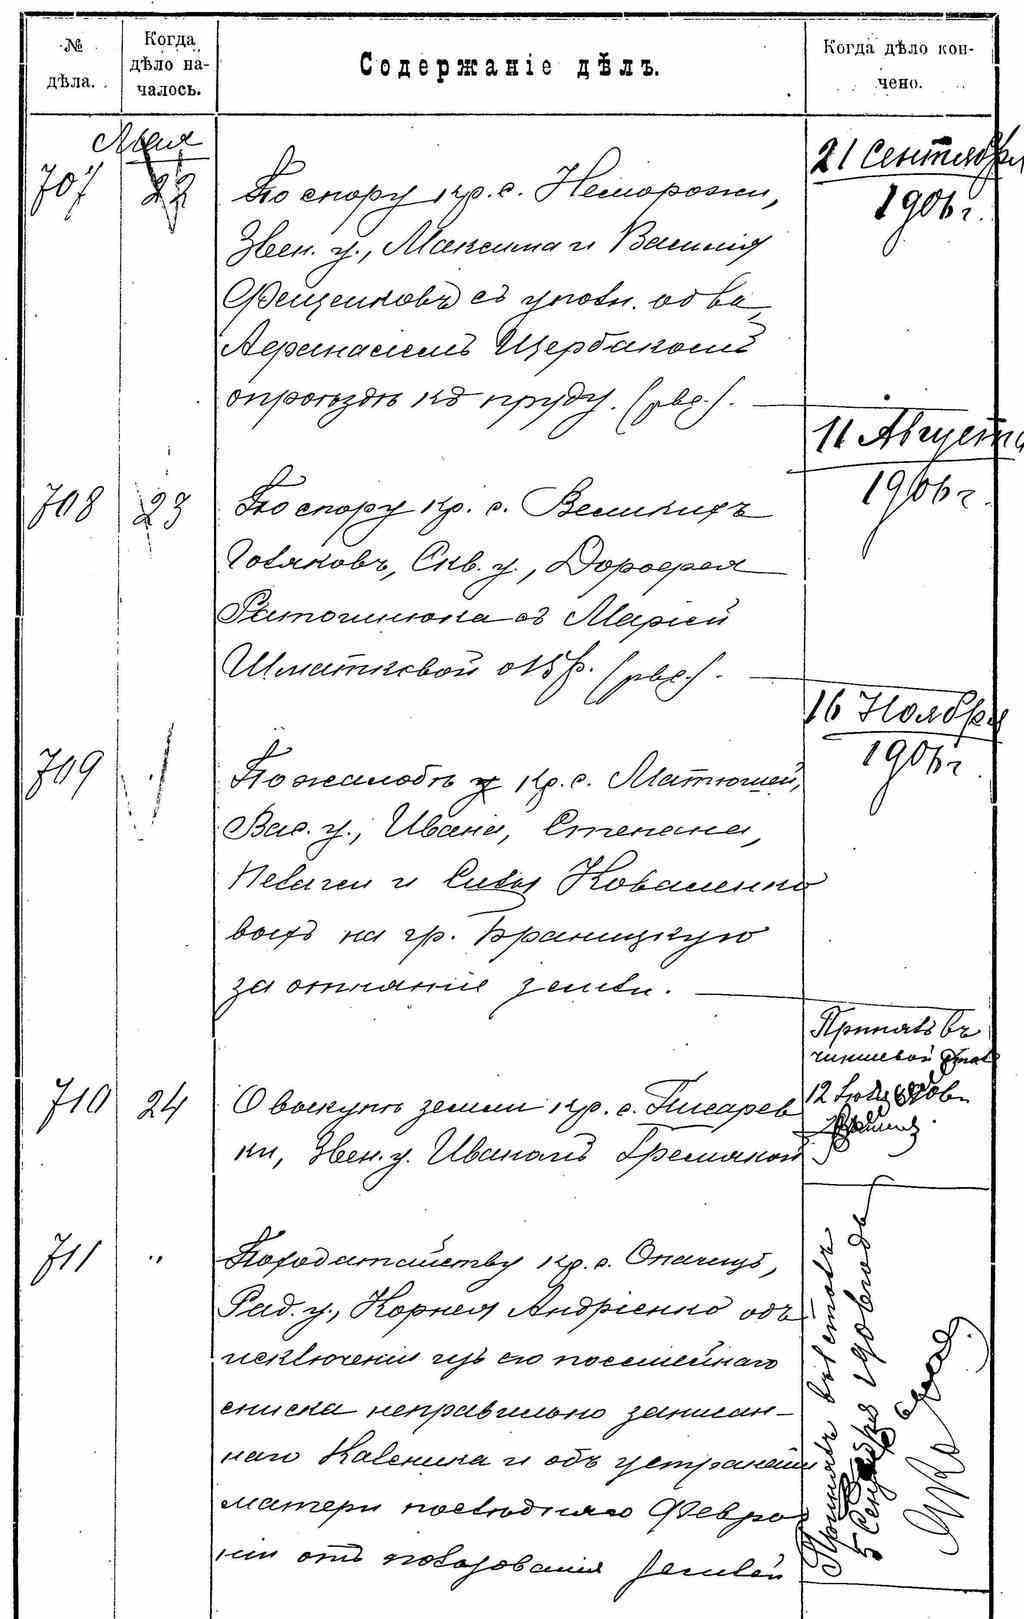 № дѣла.
Когда дѣло началось.
Содержаніе дѣлъ.
Когда дѣло кончено.
Мая
707
22
По спору кр. с. Неморожи,
Звен. у., Максима и Василія
Фещенковъ съ уполн. об-ва
Афанасіемъ Щербакомъ
о проѣздѣ къ пруду. (рвд.).
21 Сентября
1906 г.
708
23
По спору кр. с. Великихъ
Гуляковъ, Скв. у., Дорофея
Ратошнюка съ Маріей
Шматковой о 15 р. (рвд.).
11 Августа
1906 г.
709
По жалобѣ кр. с. Матюшей,
Вас. у., Ивана, Степана,
Пелагеи и Коваленко
выхъ на гр. Браницкую
за отнятіе земли.
16 Ноября
1906 г.
710
24
О выкупѣ земли кр. с. Писарев
ки, Звен. у. Иваномъ
Принялъ въ
чиншевой
12
711
"
По ходатайству кр. с. Опачицъ,
Рад. у., Корнея Андріенко объ
исключеніи изъ его посемейнаго
списка неправильно записан-
наго Каленика и объ устраненіи
матери послѣдняго Февро
ніи отъ пользованія землей
Принялъ
5 Сентября 1906 года